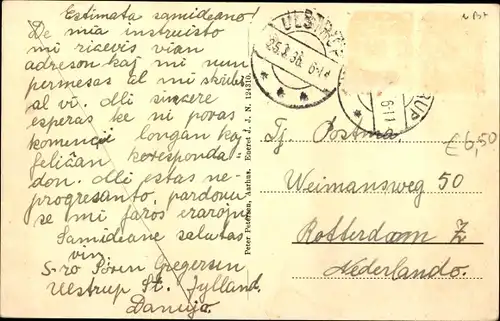 Estimata samideano!
De mia instruisto
mi ricevis vian
adreson kaj mi nun
permesas al mi skribi
al vi. Mi sincere
esperas ke ni povas
komenci longan kaj
feliĉan koresponda-
don. Mi estas ne-
progresanto, pardonu
se mi faros erarojn.
Samideane salutas
vin
S-ro Sören Gregersen
Ulstrup St. Jylland.
Danujo.
Peter Petersen, Aarhus. Eneret J. J. N. 124310.
ULSTRUP
25.3.36. 6-11
RUP
6-11
Tj. Postma
Weimansweg 50
Rotterdam Z
Nederlando.
£6,50